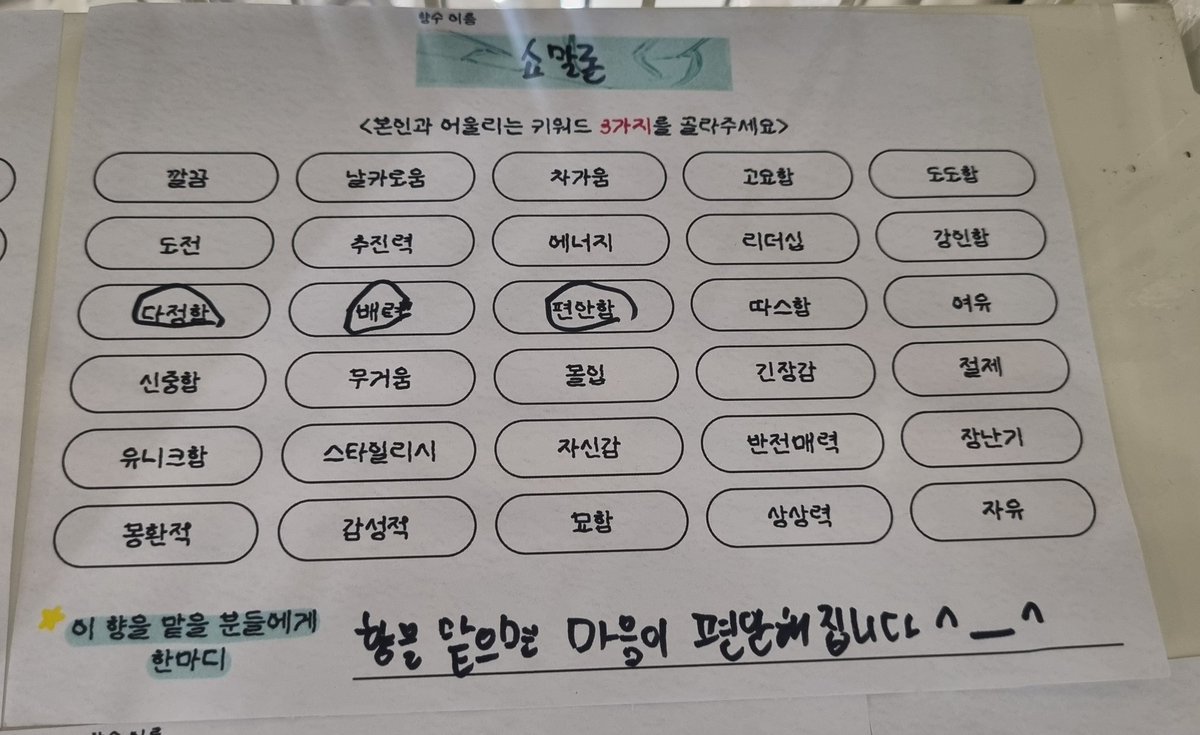 향수 이름
쇼말론
<본인과 어울리는 키워드 3가지를 골라주세요>
깔끔 날카로움 차가움 고요함 도도함
도전 추진력 에너지 리더십 강인함
다정함 배려 편안함 따스함 여유
신중함 무거움 몰입 긴장감 절제
유니크함 스타일리시 자신감 반전매력 장난기
몽환적 감성적 묘함 상상력 자유
이 향을 맡을 분들에게
한마디
향을 맡으면 마음이 편안해집니다 ^_^